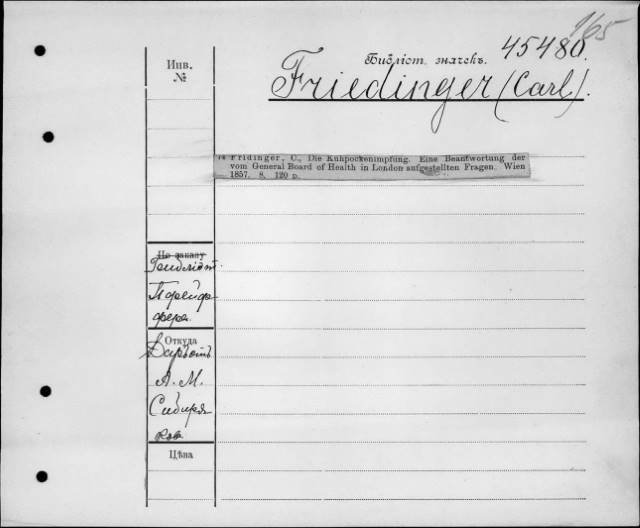 165
Инв.
№
Библіот. значекъ. 45480.
Friedinger (Carl).
Fridinger, C., Die Kuhpockenimpfung. Eine Beantwortung der
vom General Board of Health in London aufgestellten Fragen. Wien
1857. 8. 120 p.
По заказу
Пфейф-
фера
Откуда
А. М.
Сибиря
ков
Цѣна